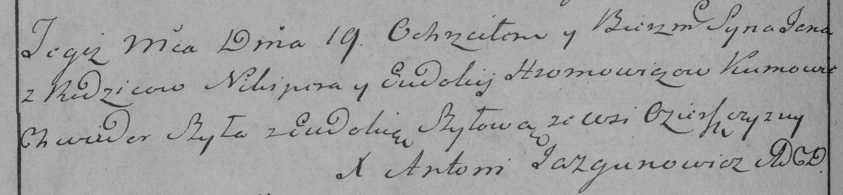 Tegiż Mca Dnia 19 Ochrzciłem y Bierzm Syna Jana
z Rodzicow Nikipera y Eudokij Hromowiczow Kumowie
Chwiedor Szyła z Eudokią Szyłową ze wsi Ozierszczyzny
X Antoni Jazgunowicz